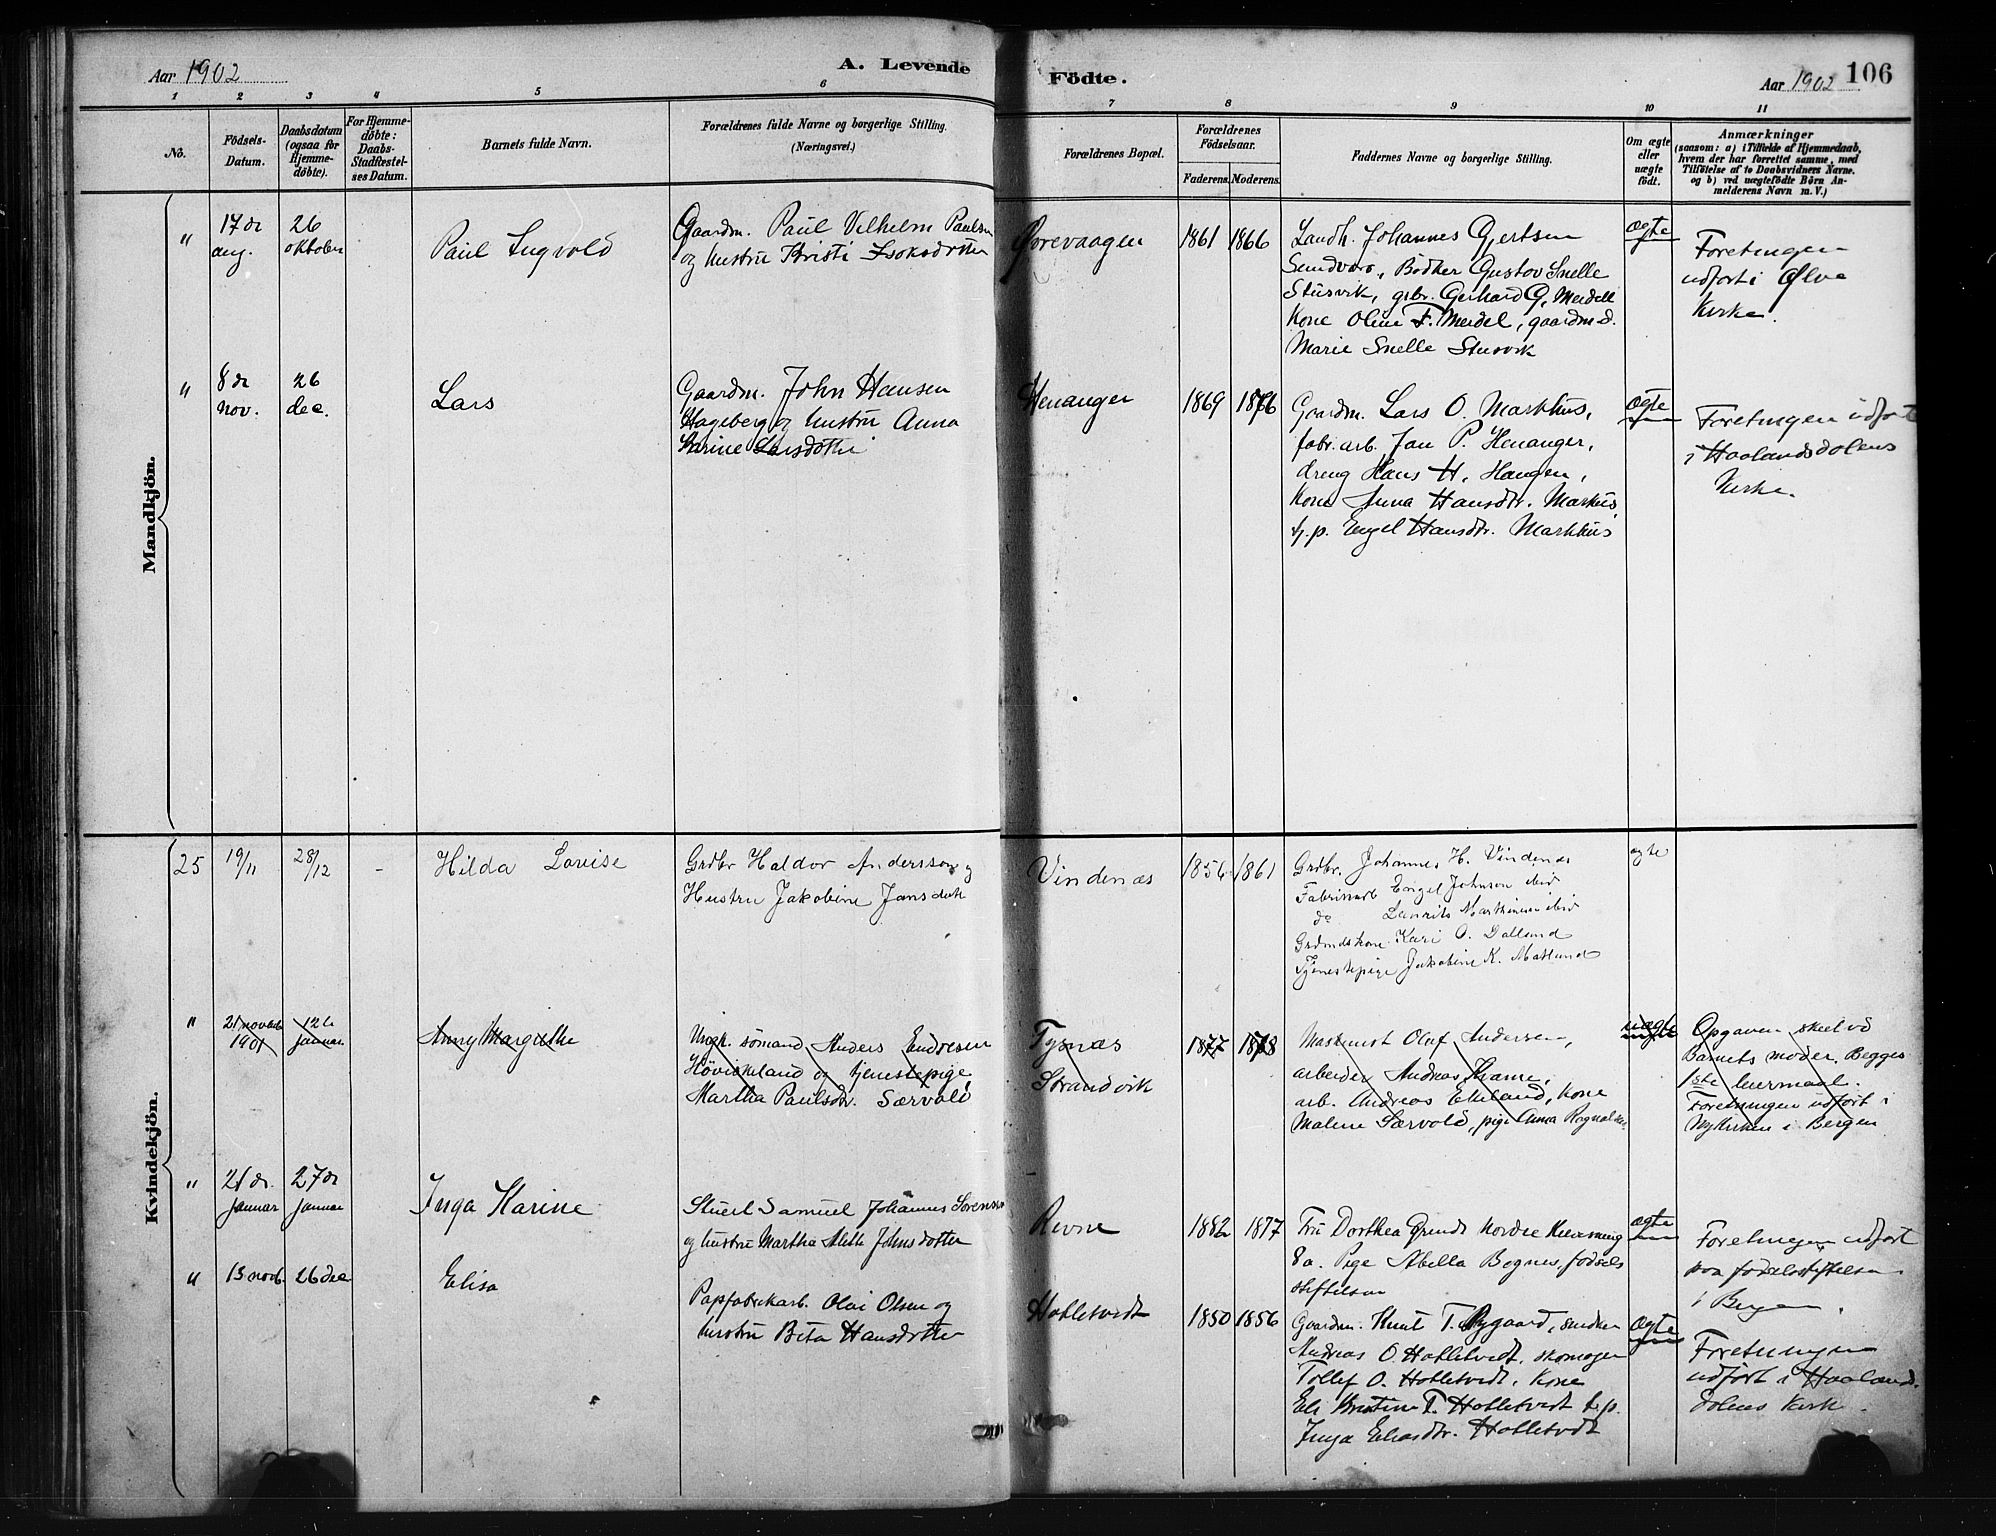 Aar 1902
A. Levende
Födte.
Aar 1902
106
1 2 3 4 5 6 7 8 9 10 11
No.
Födsels-
Datum.
Daabsdatum
(ogsaa for
Hjemme-
döbte).
For Hjemme-
döbte:
Daabs-
Stadfæstel-
ses Datum.
Barnets fulde Navn.
Forældrenes fulde Navne og borgerlige Stilling.
(Næringsvei.)
Forældrenes Bopæl.
Forældrenes
Födselsaar.
Faderens. Moderens.
Faddernes Navne og borgerlige Stilling.
Om ægte
eller
uægte
födt.
Anmærkninger
(saasom: a) i Tilfælde af Hjemmedaab,
hvem der har forrettet samme, med
Tilföielse af to Daabsvidners Navne.
og b) ved uægtefödte Börn An-
melderens Navn m. V.)
Mandkjön.
"
17de
aug.
26
oktober
Paul Ingvold
Gaardm. Paul Vilhelm Paulsen
og hustru Kristi Isaksdatter
Ørevaagen
1861 1866
Landh. Johannes Gjertsen
Sundvoro, Bødker Gustav Snelle
Stusvik, gbr. Gerhard G. Merdell
Kone Oline F. Merdel, gaardm.d.
Marie Snelle Stusvik
ægte
Foretningen
udført i Ølve
Kirke.
"
8de
nov.
26
dec.
Lars
Gaardm. John Hansen
Hageberg og hustru Anna
Karine Larsdotter
Henanger
1869 1876
Gaardm. Lars O. Markhus,
fabr. arb. Jan P. Henanger,
dreng Hans H. Haugen,
Kone Anna Hansdtr. Markus,
tj.p. Engel Hansdtr. Markhus
Ægte
Foretningen udført
i Haalandsdalens
Kirke.
Kvindekjön.
25
19/11
28/12
-
Hilda Lovise
Grdbr Haldor Anderssen og
Hustru Jakobine Jansdatter
Vindenæs
1856 1861
Grdbr. Johannes H. Vindenæs
Fabrikarb Engel Johnsen ibid
do Laurits Mathiesen ibid
Grdmdskone Kari O. Dalland
Tjenestepige Jakobine K. Matland
ægte
"
21 novbr
1901
12te
januar
Anny Margithe
Ungk. sømand Anders Endresen
Høviskeland og tjenestepige
Martha Paulsdtr. Særvold
Tysnæs
Strandvik
1877 1878
Maskinist Olaf Andersen,
arbeider Andreas Krame,
arb. Andreas Ekeland, Kone
Malene Særvold, pige Anna Rognaldsen
uægte
Opgaven skeet ved
Barnets moder. Begges
1ste leiermaal.
Foretningen udført i
Nykirken i Bergen
"
21de
januar
27de
januar
Inga Karine
Stuert Samuel Johannes Sørensen
og hustru Martha Aletta Johnsdotter
Revne
1882 1877
Fru Dorthea Grund Nordre Kleivesmug
8a. Pige Abella Bognes, fødsels
stiftelsen
ægte
Foretningen udført
paa fødselsstiftelsen
i Bergen.
"
13 novb.
26 dec
Elisa
Papfabrikarb. Olai Olsen og
hustru Brita Hansdotter
Holletvedt
1850 1856
Gaardm. Knut T. Rygaard, snedker
Andreas O. Holletvedt, skomager
Tollef O. Holletvedt, Kone
Eli Kristine T. Holletvedt t.p.
Inga Eliasdtr. Holletvedt
Ægte
Foretningen
udført i Haalands-
dalens Kirke.